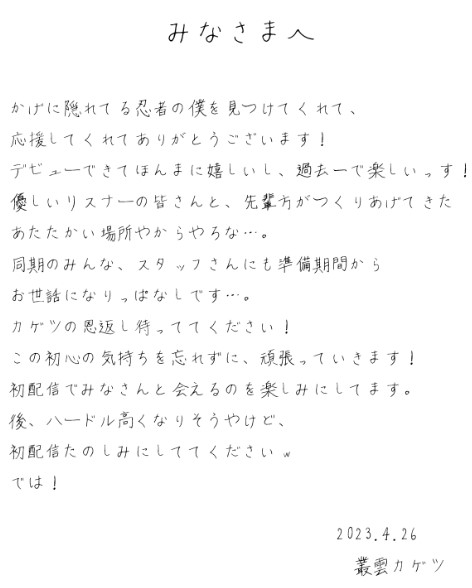 みなさまへ
かげに隠れてる忍者の僕を見つけてくれて、
応援してくれてありがとうございます！
デビューできてほんまに嬉しいし、過去一で楽しいっす！
優しいリスナーの皆さんと、先輩方がつくりあげてきた
あたたかい場所やからやろな…。
同期のみんな、スタッフさんにも準備期間から
お世話になりっぱなしです…。
カゲツの恩返し待っててください！
この初心の気持ちを忘れずに、頑張っていきます！
初配信でみなさんと会えるのを楽しみにしてます。
後、ハードル高くなりそうやけど、
初配信たのしみにしててくださいw
では！
2023.4.26
叢雲カゲツ